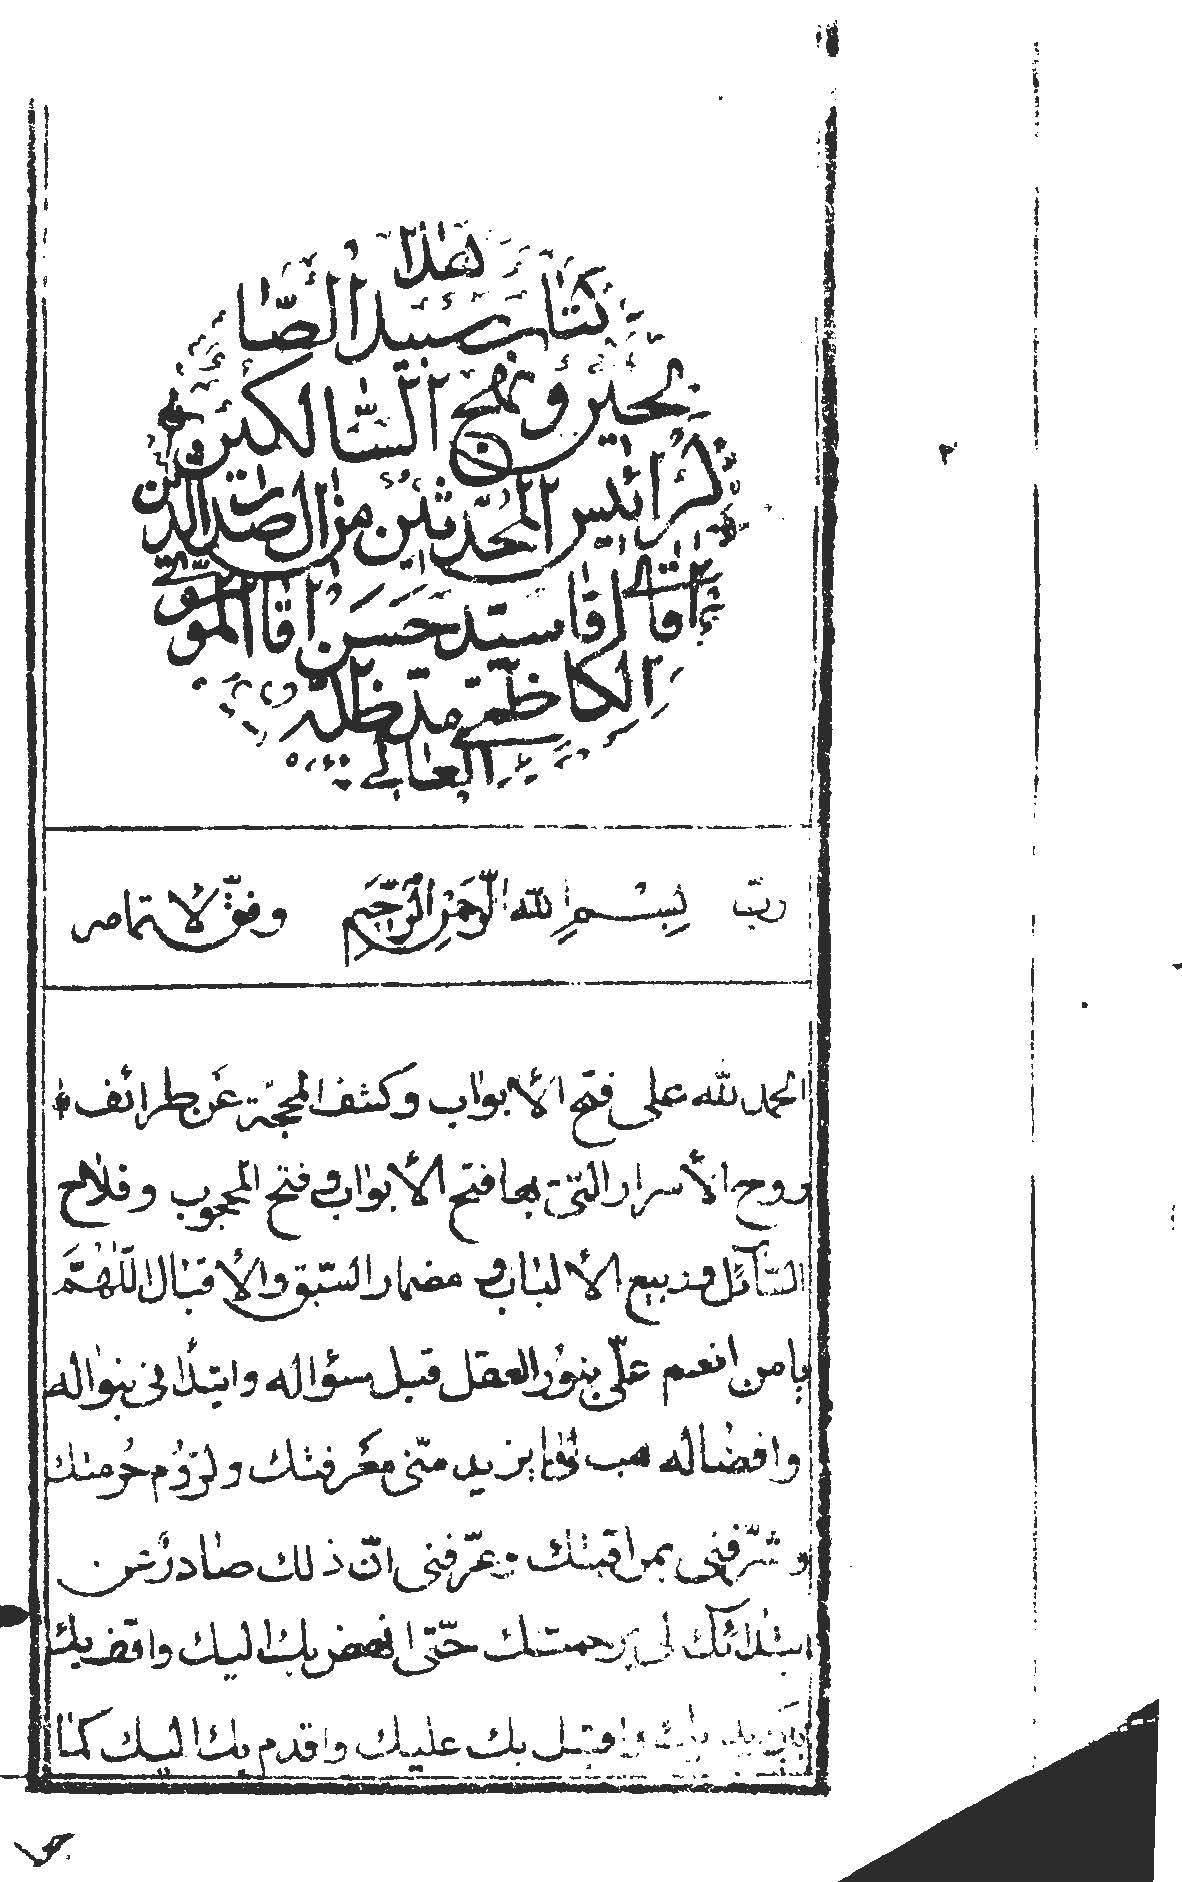 هذا
كتاب سبيل الصا
لحين ونهج السالكين و
لرائيس المحدثين من الصدرات الدين
اقائے اقا سيد حسن اقا الموسوي
الكاظمے مد ظله
العالے
٢
رب بسم الله الرحمن الرحيم وفق لاتمامه
الحمد لله على فتح الابواب وكشف المحجة عن طرائف
وروح الأسرار التي بها فتح الأبواب وفتح المحجوب وفلاح
السائل وربيع الألباب و مضمار السبق والاقبال اللّهمّ
يا من انعم علّي بنور العقل قبل سؤاله وابتدانی بنواله
وافضاله هب لي مزيد منّی معرفتك ولزوم حرمتك
و شرّفنی بمراقبتك وعرّفنی انّ ذلك صادر عن
ابتدائك لی برحمتك حتّى انهض بك اليك واقف بك
بين يديك واقبل بك عليك واقدم بك اليك كما